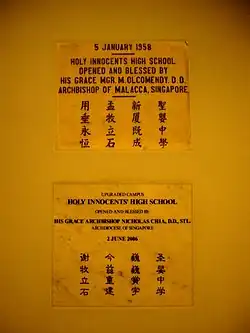 5 JANUARY 1958
HOLY INNOCENTS HIGH SCHOOL
OPENED AND BLESSED BY
HIS GRACE MGR. M. OLCOMENDY. D.D.
ARCHBISHOP OF MALACCA, SINGAPORE
聖嬰中學
新厦既成
孟牧立石
用垂永恒
UPGRADED CAMPUS
HOLY INNOCENTS' HIGH SCHOOL
OPENED AND BLESSED BY
HIS GRACE ARCHBISHOP NICHOLAS CHIA, D.D., STL.
ARCHDIOCESE OF SINGAPORE
2 JUNE 2006
圣婴中学
巍巍黉宇
今益重建
谢牧立石